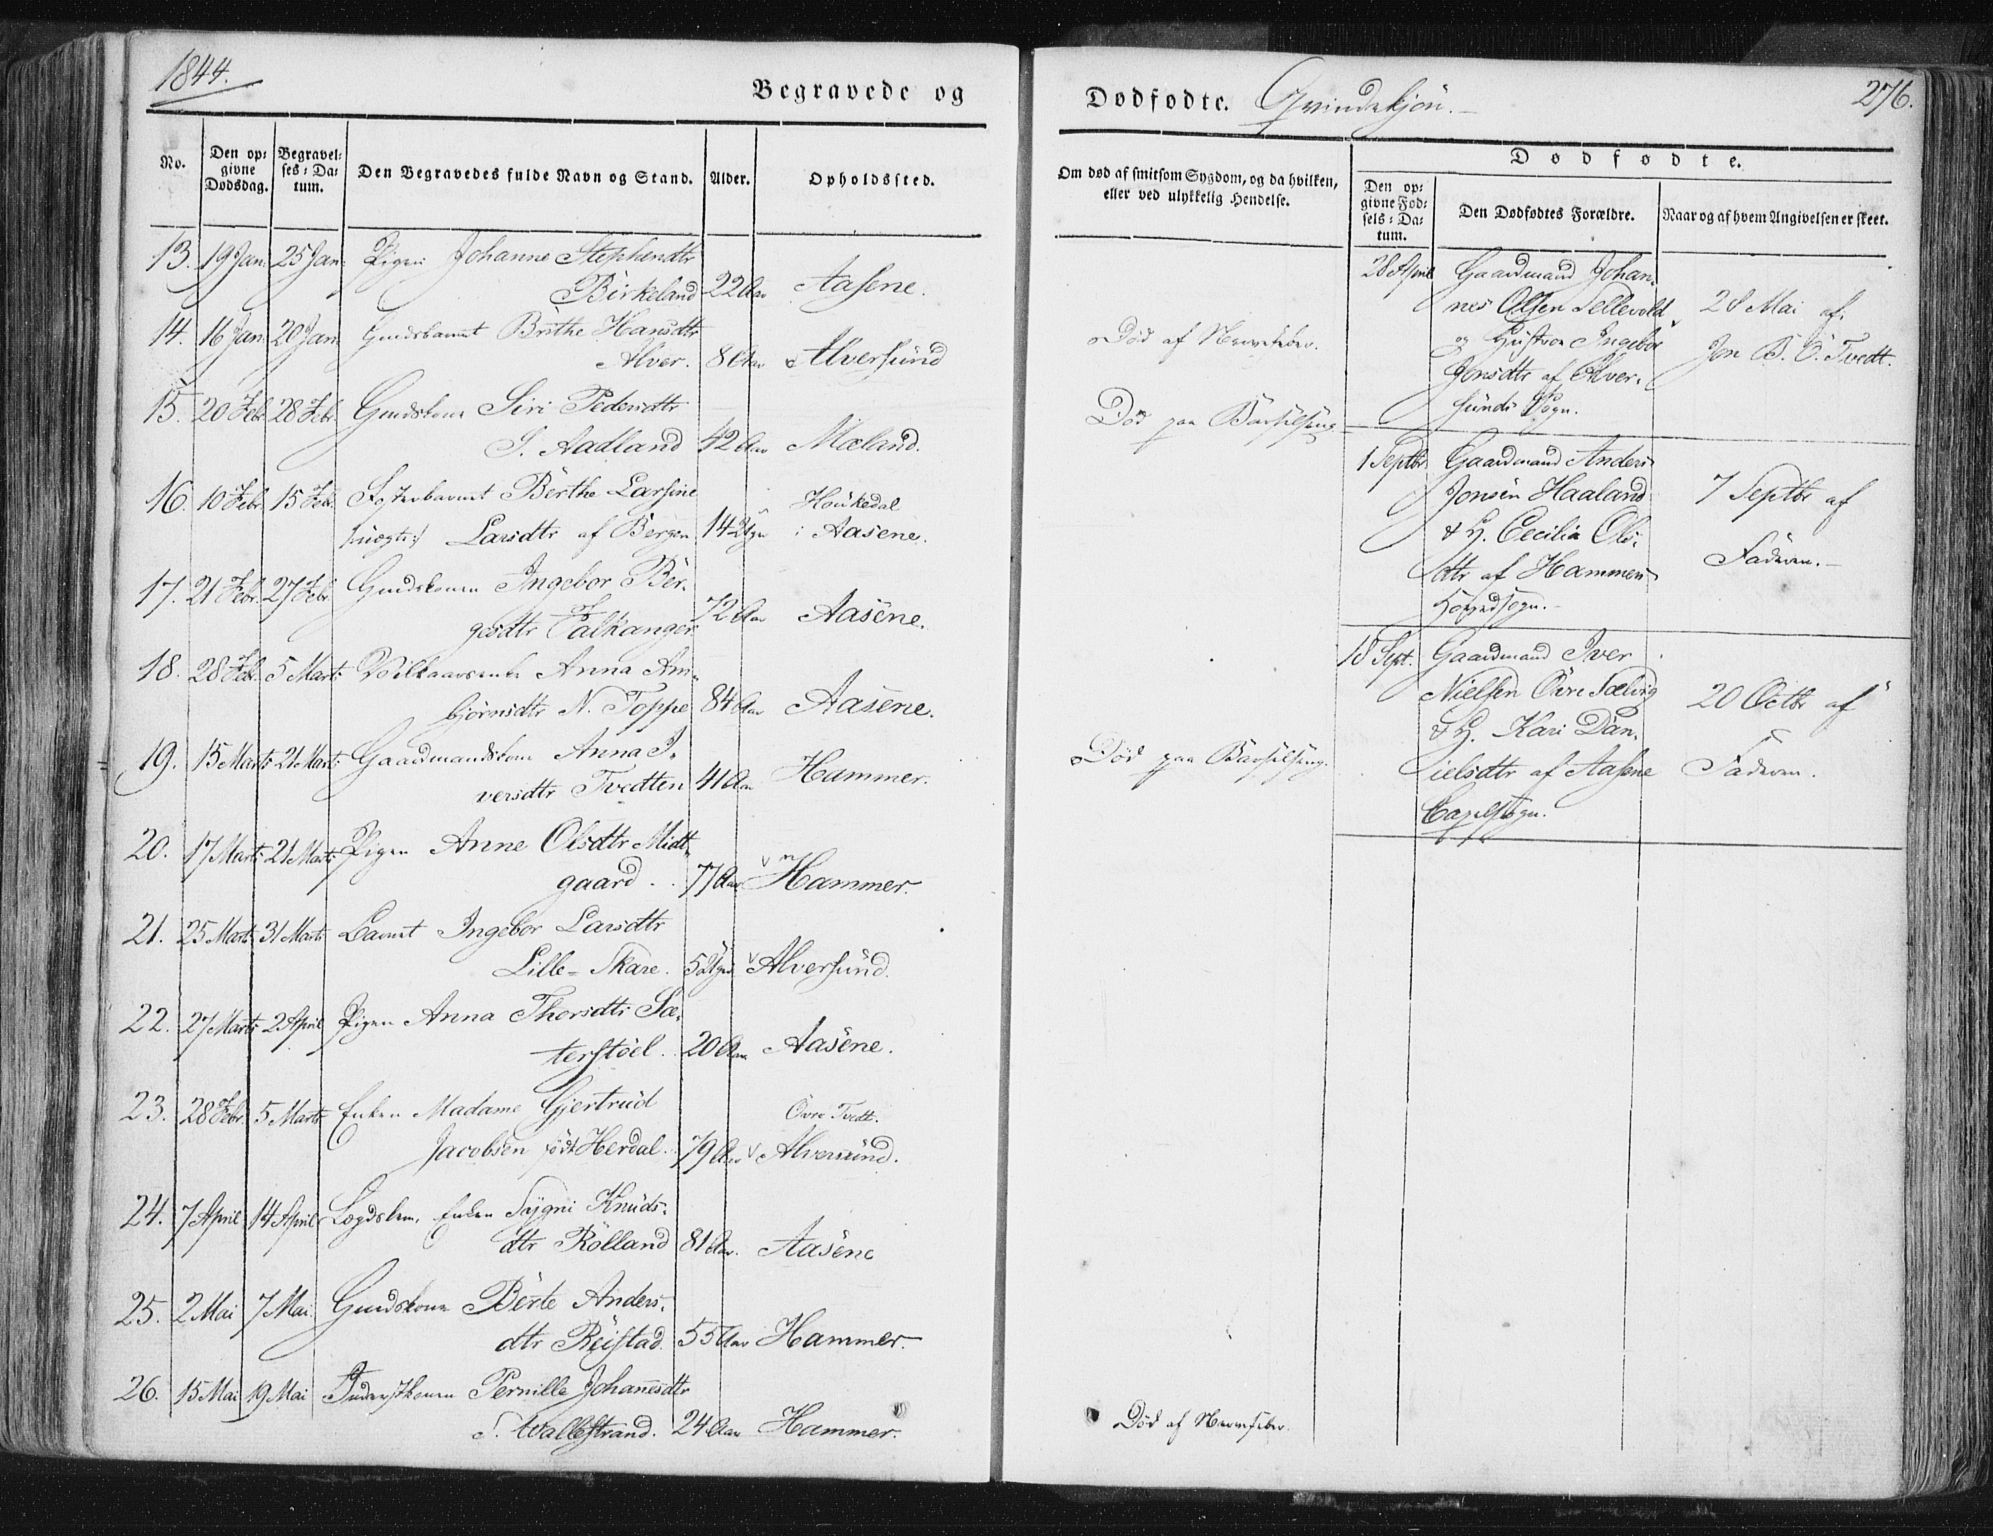 1844.
Begravede og
No.
Den op-
givne
Dødsdag.
Begravel-
ses-Da-
tum.
Den Begravedes fulde Navn og Stand.
Alder.
Opholdssted.
13. 19 Jan. 25 Jan. Pigen Johanne Stephensdtr
Birkeland 22 Aar Aasene.
14. 16 Jan. 20 Jan. Brithe Hansdtr
Alver. 8 Aar Alversund
15. 20 Febr. 28 Febr. Siri Pedersdtr
S. Aadland 42 Aar Mæland.
16. 10 Febr. 15 Febr. Berthe Larsine Houkedal
Larsdtr af Bergen 14 Dge i Aasene.
17. 21 Febr. 27 Febr. Ingebor Ber-
gesdtr Falkanger 72 Aar Aasene.
18. 28 Febr. 5 Marts Anna An-
bjørnsdtr N. Toppe 84 Aar Aasene.
19. 15 Marts 21 Marts Gaardmandskone Anna I-
versdtr Tvedten 41 Aar Hammer.
20. 17 Marts 21 Marts Pigen Anne Olsdtr Midt-
gaard. 77 Aar Hammer.
21. 25 Marts 31 Marts Barnet Ingebor Larsdtr
Lille-Skare. Alversund.
22. 27 Marts 2 April Pigen Anna Thorsdtr Sæ-
terstøel. 20 Aar Aasene.
23. 28 Febr. 5 Marts Enken Madame Gjertrud Øvre Tvedt.
Jacobsen født Herdal. 79 Aar Alversund.
24. 7 April 14 April Lægdslem, Enken Sygni Knuds-
dtr Rølland 81 Aar. Aasene
25. 2 Mai 7 Mai. Berte Anders-
dtr Reistad. 55 Aar Hammer.
26. 15 Mai 19 Mai Pernille Johannesdtr
S. Wallestrand. 24 Aar Hammer.
Dødfødte. Qvindekjøn.
276.
Om død af smitsom Sygdom, og da hvilken,
eller ved ulykkelig Hendelse.
Dødfødte.
Den op-
givne Fød-
sels-Da-
tum.
Den Dødfødtes Forældre.
Naar og af hvem Angivelsen er skeet.
Død af Nervefeber.
Død paa Barselseng.
Død paa Barselseng.
Død af Nervefeber.
28 April Gaardmand Johan-
nes Olsen Tellevold
og Hustroe Ingebor
Jonsdtr af Alver-
sunds Sogn.
28 Mai af
Jon B. Ö. Tvedt.
1 Septbr Gaardmand Anders
Jonsen Haaland
& H. Cecilia Ols-
dtr af Hammers
Hovedsogn.
7 Septbr af
Faderen.
18 Sept. Gaardmand Iver
Nielsen Øvre Sælvig
& H. Kari Dan-
ielsdtr af Aasene
Capelsogn.
20 Octbr af
Faderen.